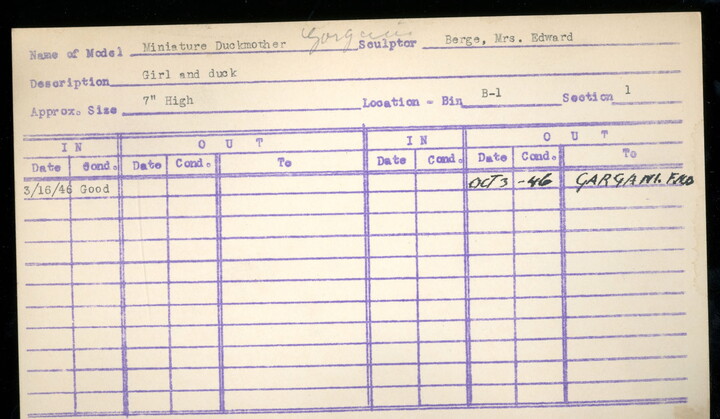 Name of Model Miniature Duckmother Gargani Sculptor Berge, Mrs. Edward
Description Girl and duck
Approx. Size 7" High Location - Bin B-1 Section 1
I N O U T I N O U T
Date Cond. Date Cond. To Date Cond. Date Cond. To
3/16/46 Good OCT 3 -46 GARGANI.